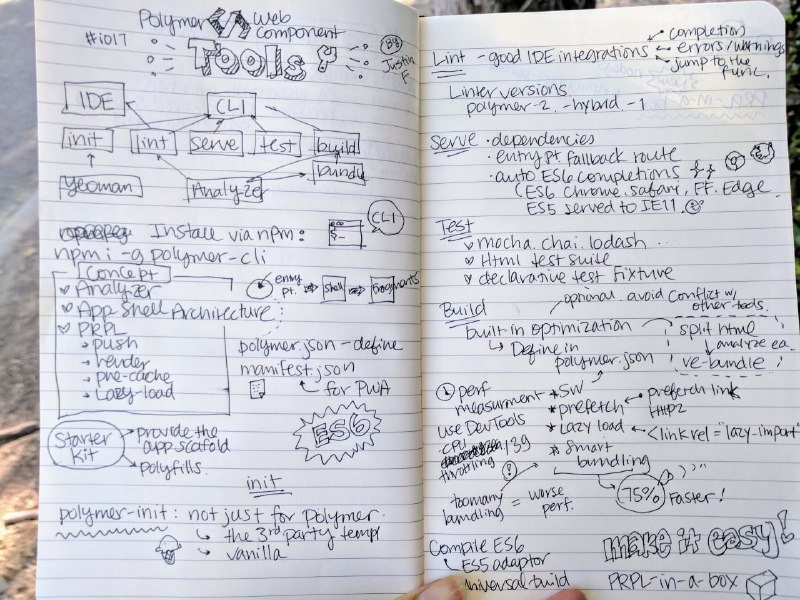 Polymer </> web component
#io17
Tools
By Justin F.
IDE
CLI
init
lint
serve
test
build
bundle
Yeoman
Analyzer
Install via npm:
CLI
$_
npm i -g polymer-cli
Concept
Analyzer
App Shell Architecture:
PRPL
push
render
pre-cache
Lazy-load
entry pt.
shell
fragments
polymer.json - define
manifest.json
for PWA
ES6
Starter Kit
provide the app scafold
polyfills.
init
polymer-init: not just for polymer.
the 3rd party templ
vanilla
Lint - good IDE integrations
completion
errors/warnings
jump to the func.
Linter versions
polymer-2 -hybrid -1
serve
dependencies
entry pt fallback route
auto ES6 completions
(ES6 Chrome. safari, FF. Edge
ES5 served to IE11.
Test
mocha. chai. lodash ...
Html test suite
declarative test Fixture
Build
optional. avoid conflict w/ other tools.
built in optimization
Define in polymer.json
split html
analyze ea.
re-bundle
perf measurment
use DevTools
CPU
throttling
*SW
*prefetch
prefetch link
HTTP2
*Lazy load
<link rel="lazy-import"
*smart bundling
too many bundling = worse perf.
75% Faster!
Compile ES6
ES5 adaptor
universal build
make it easy!
PRPL-in-a-box